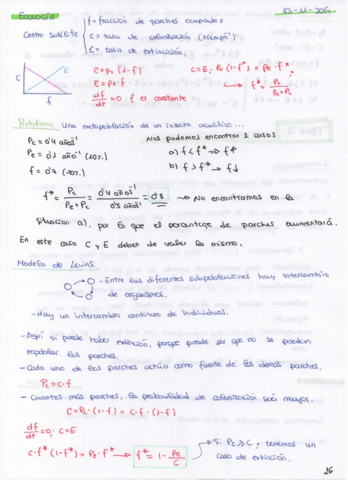 Ecología
13-11-2014
Centro Satélite
f = fracción de parches ocupados
C = tasa de colonización (tiempo⁻¹)
E = tasa de extinción.
C = pc (1-f)
E = pe · f
df/dt = 0 f es constante
C = E; Pc (1-f*) = Pe · f*
f* = Pc / (Pe + Pc)
C
E
f
Problema: Una metapoblación de un insecto acuático...
Pc = 0'4 años⁻¹
Pe = 0,1 año⁻¹ (10%)
f = 0'7 (70%)
Nos podemos encontrar 2 casos
a) f < f* → f↑
b) f > f* → f↓
f* = Pc / (Pe + Pc) = 0'4 años⁻¹ / 0'5 años⁻¹ = 0'8 → Nos encontramos en la
situación a), por lo que el porcentaje de parches aumentará.
En este caso C y E deben de valer lo mismo.
Modelo de Levins
- Entre las diferentes subpoblaciones hay intercambio
de organismos.
- Hay un intercambio continuo de individuos.
- Aquí si puede haber extinción, porque puede ser que no se puedan
repoblar los parches.
- Cada uno de los parches actúa como fuente de los demás parches.
Pc = c · f
- Cuantos más parches, la probabilidad de colonización será mayor.
C = Pc · (1-f) = c · f · (1-f)
df/dt = 0; C = E
c · f* (1-f*) = Pe · f* → f* = 1 - Pe/C
→ Si Pe ≥ C, tenemos un
caso de extinción.
26